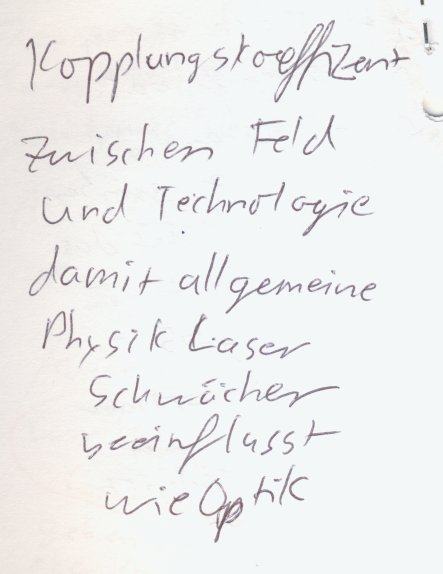 Kopplungskoeffizent
zwischen Feld
und Technologie
damit allgemeine
Physik Laser
Schwächer
beeinflusst
wie Optik